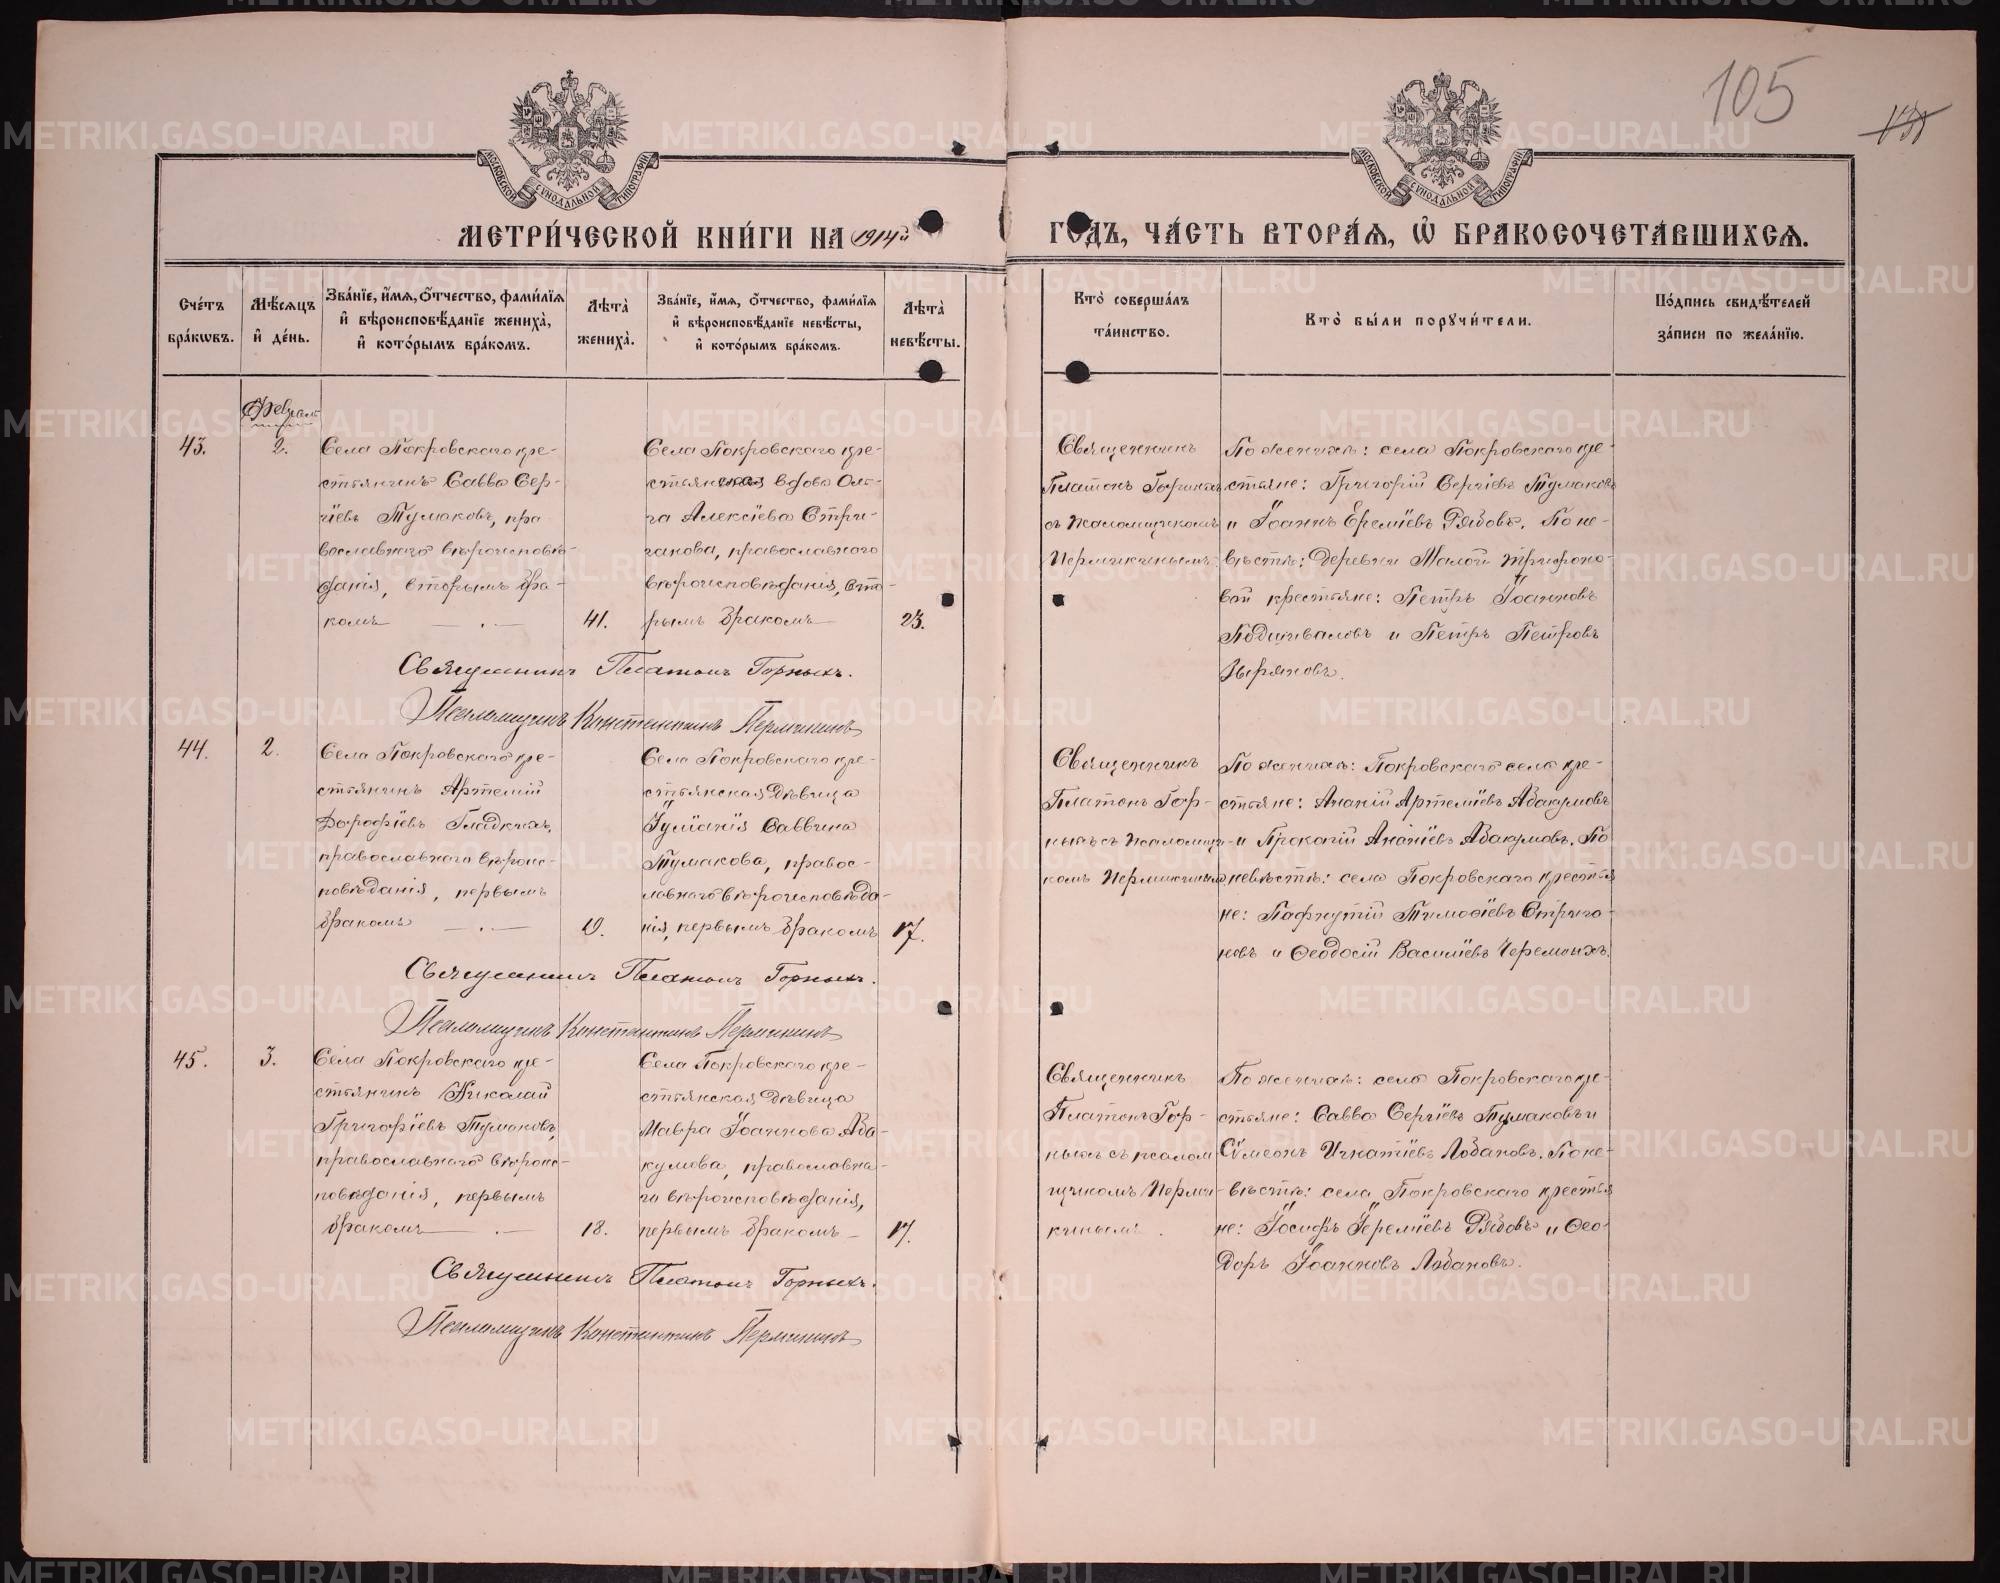 105
МОСКОВСКОЙ СУНОДАЛЬНОЙ ТИПОГРАФІИ
МОСКОВСКОЙ СУНОДАЛЬНОЙ ТИПОГРАФІИ
МЕТРИ́ЧЕСКОЙ КНИ́ГИ НА 1914й
ГО́ДЪ, ЧА́СТЬ ВТОРА́Ѧ, Ѡ҆ БРАКОСОЧЕТА́ВШИХСѦ.
Счетъ браковъ.
Мѣсяцъ и день.
Званіе, имя, отчество, фамилія и вѣроисповѣданіе жениха, и которымъ бракомъ.
Лѣта жениха.
Званіе, имя, отчество, фамилія и вѣроисповѣданіе невѣсты, и которымъ бракомъ.
Лѣта невѣсты.
Кто совершалъ таинство.
Кто были поручители.
Подпись свидѣтелей записи по желанію.
Февраль
43.
2.
Села Покровскаго кре-
стьянинъ Савва Сер-
гіевъ Тумаковъ, пра
вославнаго вѣроисповѣ-
данія, вторымъ бра-
комъ
41.
Села Покровскаго кре-
стьянская вдова Оль-
га Алексіева Стри-
ганова, православнаго
вѣроисповѣданія, вто-
рымъ бракомъ
23.
Священникъ
Платонъ Горныхъ
съ псаломщикомъ
Пермикинымъ.
По женихѣ: села Покровскаго кре-
стьяне: Григорій Сергіевъ Тумаковъ
и Іоаннъ Ереміевъ Рябовъ. По не-
вѣстѣ: деревни Малой Трифоно-
вой крестьяне: Петръ Іоанновъ
Подшиваловъ и Петръ Петровъ
Зыряновъ.
Священникъ Платонъ Горныхъ.
Псаломщикъ Константинъ Пермикинъ
44.
2.
Села Покровскаго кре-
стьянинъ Артемій
Дорофіевъ Гладкихъ,
православнаго вѣроис-
повѣданія, первымъ
бракомъ
19.
Села Покровскаго кре-
стьянская дѣвица
Іуліанія Саввина
Тумакова, правос-
лавнаго вѣроисповѣда-
нія, первымъ бракомъ
17.
Священникъ
Платонъ Гор-
ныхъ съ псаломщи-
комъ Пермикинымъ
По женихѣ: Покровскаго села кре-
стьяне: Ананій Артеміевъ Абакумовъ
и Прокопій Ананіевъ Абакумовъ. По
невѣстѣ: села Покровскаго крестья
не: Пафнутій Тимофіевъ Стрига-
новъ и Феодосій Василіевъ Черемныхъ.
Священникъ Платонъ Горныхъ.
Псаломщикъ Константинъ Пермикинъ
45.
3.
Села Покровскаго кре-
стьянинъ Николай
Григоріевъ Тумаковъ,
православнаго вѣроис-
повѣданія, первымъ
бракомъ
18.
Села Покровскаго кре-
стьянская дѣвица
Мавра Іоаннова Аба-
кумова, православна-
го вѣроисповѣданія,
первымъ бракомъ
17.
Священникъ
Платонъ Гор-
ныхъ съ псалом
щикомъ Перми-
кинымъ.
По женихѣ: села Покровскаго кре-
стьяне: Савва Сергіевъ Тумаковъ и
Сѵмеонъ Игнатіевъ Лобановъ. По не-
вѣстѣ: села Покровскаго крестья
не: Іосифъ Іереміевъ Рябовъ и Фео-
доръ Іоанновъ Лобановъ.
Священникъ Платонъ Горныхъ.
Псаломщикъ Константинъ Пермикинъ
METRIKI.GASO-URAL.RU